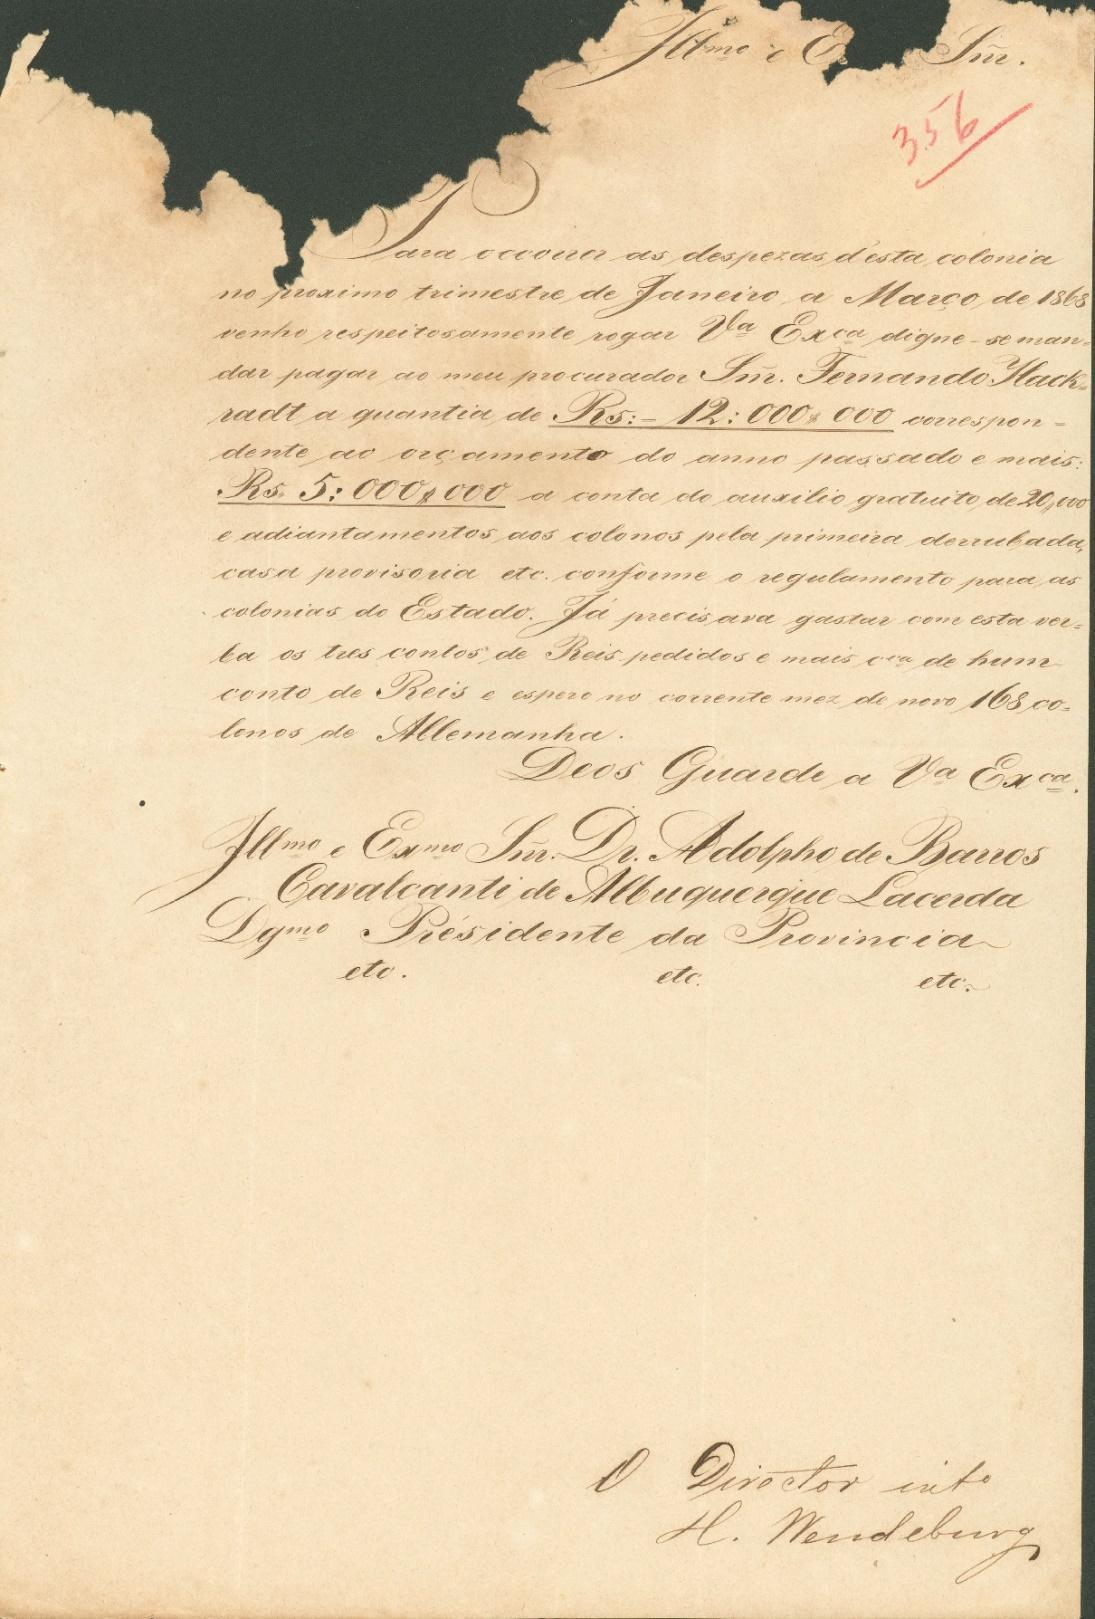 Illmo e E Snr.
356
Para occorrer as despezas d'esta colonia
no proximo trimestre de Janeiro a Março de 1868
venho respeitosamente rogar Va Exca digne-se man-
dar pagar ao meu procurador Snr. Fernando Hack-
radt a quantia de Rs:- 12:000$000 correspon-
dente ao orçamento do anno passado e mais:
Rs. 5:000$000 a conta do auxilio gratuito de 20,000
e adiantamentos aos colonos pela primeira derrubada,
casa provisoria etc. conforme o regulamento para as
colonias do Estado. Já precisava gastar com esta ver-
ba os tres contos de Reis pedidos e mais cca de hum
conto de Reis e espero no corrente mez de novo 168 co-
lonos de Allemanha.
Deos Guarde a Va Exca.
Illmo e Exmo Snr. Dr. Adolpho de Barros
Cavalcanti de Albuquerque Lacerda
Dgmo Présidente da Provincia
etc. etc. etc.
O Director into
H. Wendeburg